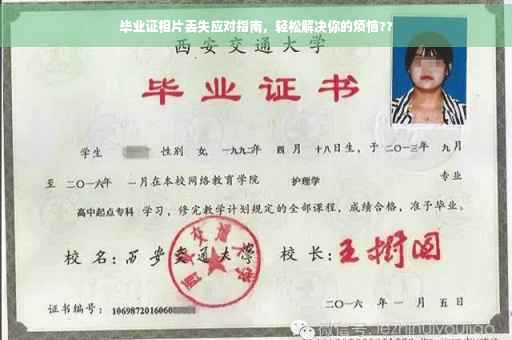 毕业证相片丢失应对指南，轻松解决你的烦恼??
西安交通大学
毕业证书
学生 性别 女，一九九二年 四 月 十八日生，于 二〇一三年 九月
至 二〇一六年 一月在本校网络教育学院 护理学 专业
高中起点专科 学习，修完教学计划规定的全部课程，成绩合格，准予毕业。
校 名：西安交通大学 校 长：王树国
证书编号：1069872016060
二〇一六 年 一 月 五 日
微信号: jezhinuiyoujiao